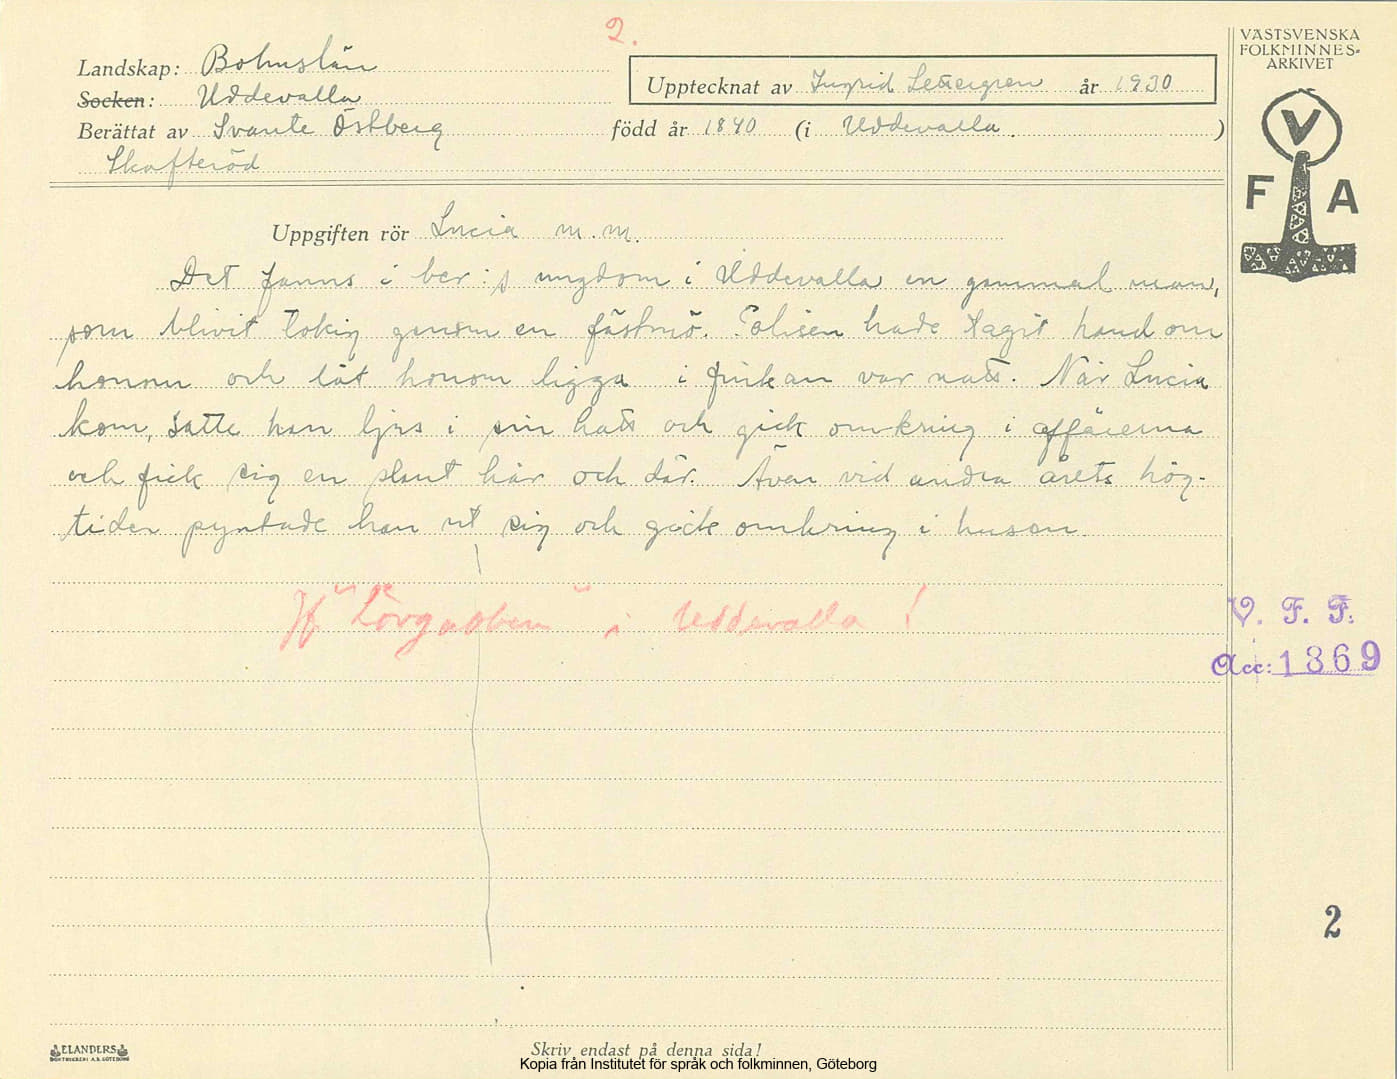 2.
VÄSTSVENSKA
FOLKMINNES-
ARKIVET
Landskap: Bohuslän
Socken: Uddevalla
Upptecknat av Ingrid år 1930
Berättat av Svante Östberg född år 1840 (i Uddevalla.)
Skafteröd
V
F A
Uppgiften rör Lucia m.m.
Det fanns i ber:s ungdom i Uddevalla en gammal man,
som blivit tokig genom en fästmö. Polisen hade tagit hand om
honom och lät honom ligga i finkan var natt. När Lucia
kom, satte han ljus i sin hatt och gick omkring i affärerna
och fick sig en slant här och där. Även vid andra årets hög-
tider pyntade han ut sig och gick omkring i husen.
Jf "Lövgubben" i Uddevalla!
V. F. F.
Acc: 1369
2
ELANDERS
BOKTRYCKERI A.B. GÖTEBORG
Skriv endast på denna sida!
Kopia från Institutet för språk och folkminnen, Göteborg